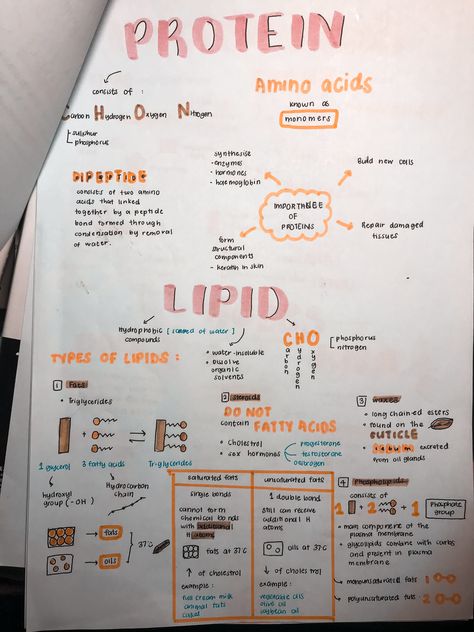 PROTEIN
consists of :
Carbon Hydrogen Oxygen Nitrogen
sulphur
phosphorus
Amino acids
known as
monomers
DIPEPTIDE
consists of two amino
acids that linked
together by a peptide
bond formed through
condensation by removal
of water.
synthesise
- enzymes
- hormones
- haemoglobin
Build new cells
IMPORTANCE
OF
PROTEINS
form
structural
components
- keratin in skin
Repair damaged
tissues
LIPID
hydrophobic [scared of water]
compounds
• water-insoluble
• dissolve
organic
solvents
CHO
carbon
hydrogen
oxygen
phosphorus
nitrogen
TYPES OF LIPIDS :
1 Fats
• Triglycerides
1 glycerol
3 fatty acids
Triglycerides
hydroxyl
group (-OH)
Hydrocarbon
chain
fats
oils
37°C
2 steroids
DO NOT
contain FATTY ACIDS
• Cholestrol
• sex hormones
progesterone
testosterone
oestrogen
3 waxes
• long chained esters
• found on the
CUTICLE
• excreted
from oil glands
saturated fats
single bonds
cannot form
chemical bonds
with additional
H atoms
fats at 37°C
↑ of cholestrol
example :
full cream milk
animal fats
unsaturated fats
1 double bond
still can receive
additional H
atoms
oils at 37°C
↓ of cholestrol
example :
vegetable oils
olive oil
soybean oil
4 Phospholipids
consists of
1 + 2 + 1 Phosphate
group
• main component of the
plasma membrane
• glycolipids combine with carbs
and present in plasma
membrane
• monounsaturated fats
• polyunsaturated fats